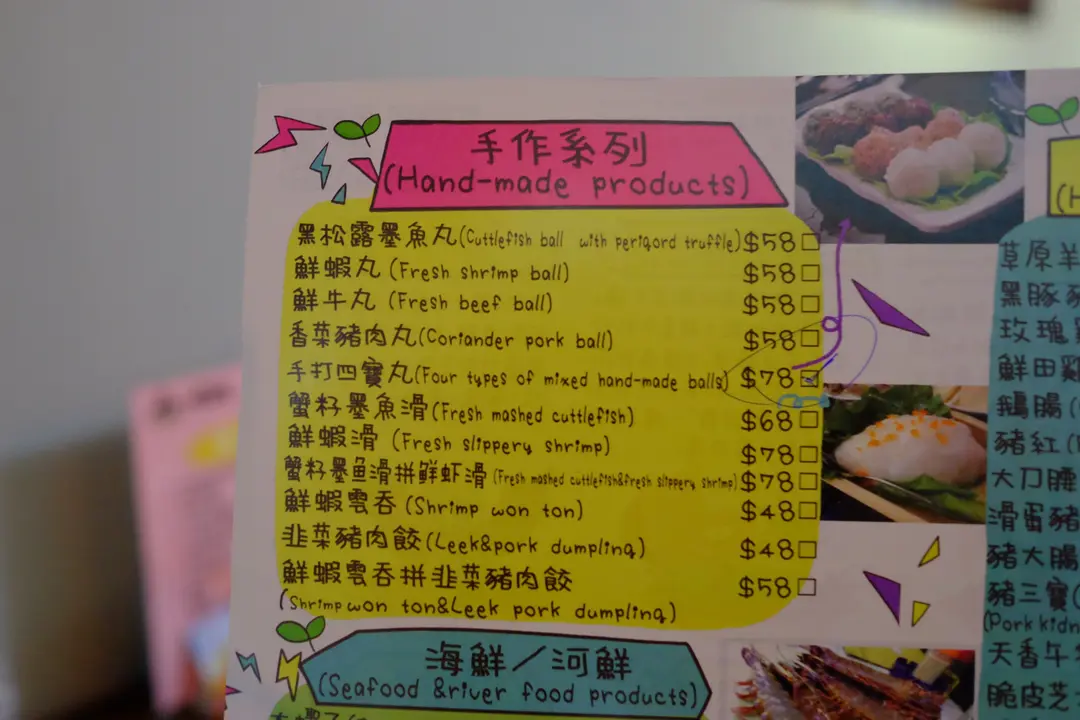 手作系列
(Hand-made products)
黑松露墨魚丸(Cuttlefish ball with perigord truffle)$58□
鮮蝦丸(Fresh shrimp ball) $58□
鮮牛丸 (Fresh beef ball) $58□
香菜豬肉丸(Coriander pork ball) $58□
手打四寶丸(Four types of mixed hand-made balls) $78□
蟹籽墨魚滑(Fresh mashed cuttlefish) $68□
鮮蝦滑 (Fresh slippery shrimp) $78□
蟹籽墨鱼滑拼鮮虾滑(Fresh mashed cuttlefish&fresh slippery shrimp)$78□
鮮蝦雲吞(Shrimp won ton) $48□
韭菜豬肉餃(Leek&pork dumpling) $48□
鮮蝦雲吞拼韭菜豬肉餃 $58□
(Shrimp won ton&Leek pork dumpling)
海鮮／河鮮
(Seafood &river food products)
(H
草原羊
黑豚豬
玫瑰
鮮田雞
鵝腸(
豬紅(
大刀腰
滑蛋豬
豬大腸
豬三寶(
(Pork kidn
天香牛
脆皮芝